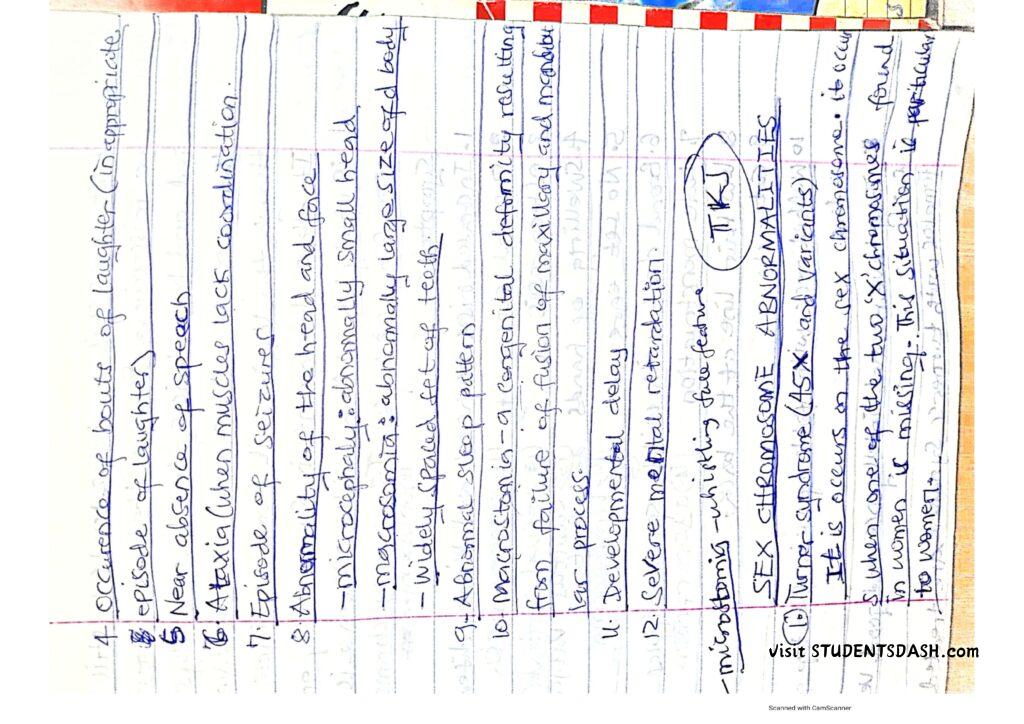 4. Occurence of bouts of laughter (inappropriate
episode of laughter)
5 Near absence of speach
6. Ataxia (when muscles lack coordination.
7. Episode of seizure
8. Abnormality of the head and face!
- microcephaly: abnormally small head
- macrosomia: abnormally large size of body
- widely spaced set of teeth.
9. Abnormal sleep pattern
10. macrostomia - a congenital deformity resulting
from failure of fusion of maxillary and mandibu
lar process.
11. Developmental delay
12. Severe mental retardation.
- microstomis - whistling face feature
TKJ
SEX CHROMOSOME ABNORMALITIES
(1) Turner syndrome (45X and variants)
It is occurs on the sex chromosome. it occur
S when one of the two 'X' chromosomes found
in women is missing. This situation is particular
to women.
visit STUDENTSDASH.com
Scanned with CamScanner